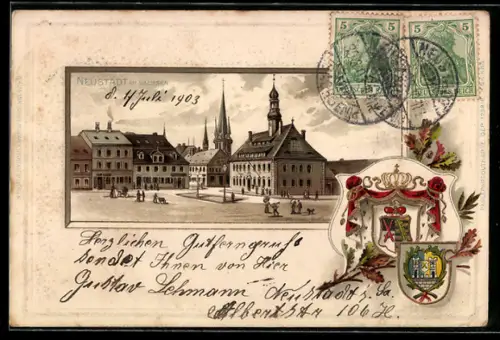 5 5
5 5
NEUSTADT IN SACHSEN
d. 4 Juli 1903
Herzlichen Gutferngruß
sendet Ihnen von hier
Gustav Lehmann Neustadt i. Sa.
Albertstr 106 H.